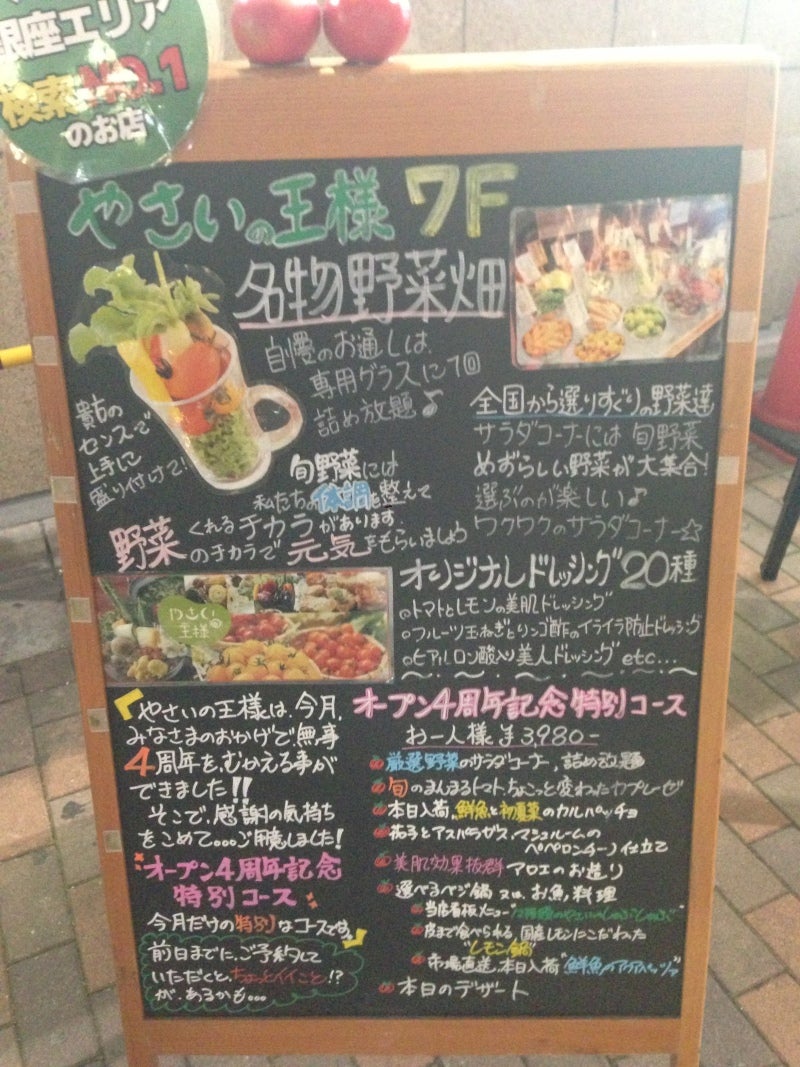 銀座エリア
検索No.1
のお店
やさいの王様 7F
名物野菜畑
自慢のお通しは、
専用グラスにて1回
詰め放題♪
貴方の
センスで
上手に
盛り付けて!
全国から選りすぐりの野菜達
サラダコーナーには 旬野菜
めずらしい野菜が大集合!
選ぶのが楽しい♪
ワクワクのサラダコーナー☆
旬野菜には
私たちの体調を整えて
くれるチカラがあります
野菜のチカラで元気をもらいましょう
やさい
王様
オリジナルドレッシング20種
トマトとレモンの美肌ドレッシング
フルーツ玉ねぎとリンゴ酢のイライラ防止ドレッシング
ヒアルロン酸入り美人ドレッシング etc...
やさいの王様は、今月、
みなさまのおかげで、無事
4周年を、むかえる事が
できました!!
そこで、感謝の気持ち
をこめて...ご用意しました!
オープン4周年記念
特別コース
今月だけの特別なコースです。
前日までに、ご予約して
いただくと、ちょっとイイこと!?
が、あるかも...
オープン4周年記念特別コース
お一人様 ¥3,980-
厳選野菜のサラダコーナー、詰め放題
旬のまんまるトマト、ちょこっと変わったカプレーゼ
本日入荷、鮮魚と初夏菜のカルパッチョ
茄子とアスパラガス、マッシュルームの
ペペロンチーノ仕立て
美肌効果抜群 アロエのお造り
選べるベジ鍋 又は、お魚料理
当店看板メニュー 12種類のやさいのしゃぶしゃぶ"
皮まで食べられる、国産レモンにこだわった
"レモン鍋"
市場直送、本日入荷"鮮魚のアクアパッツァ"
本日のデザート